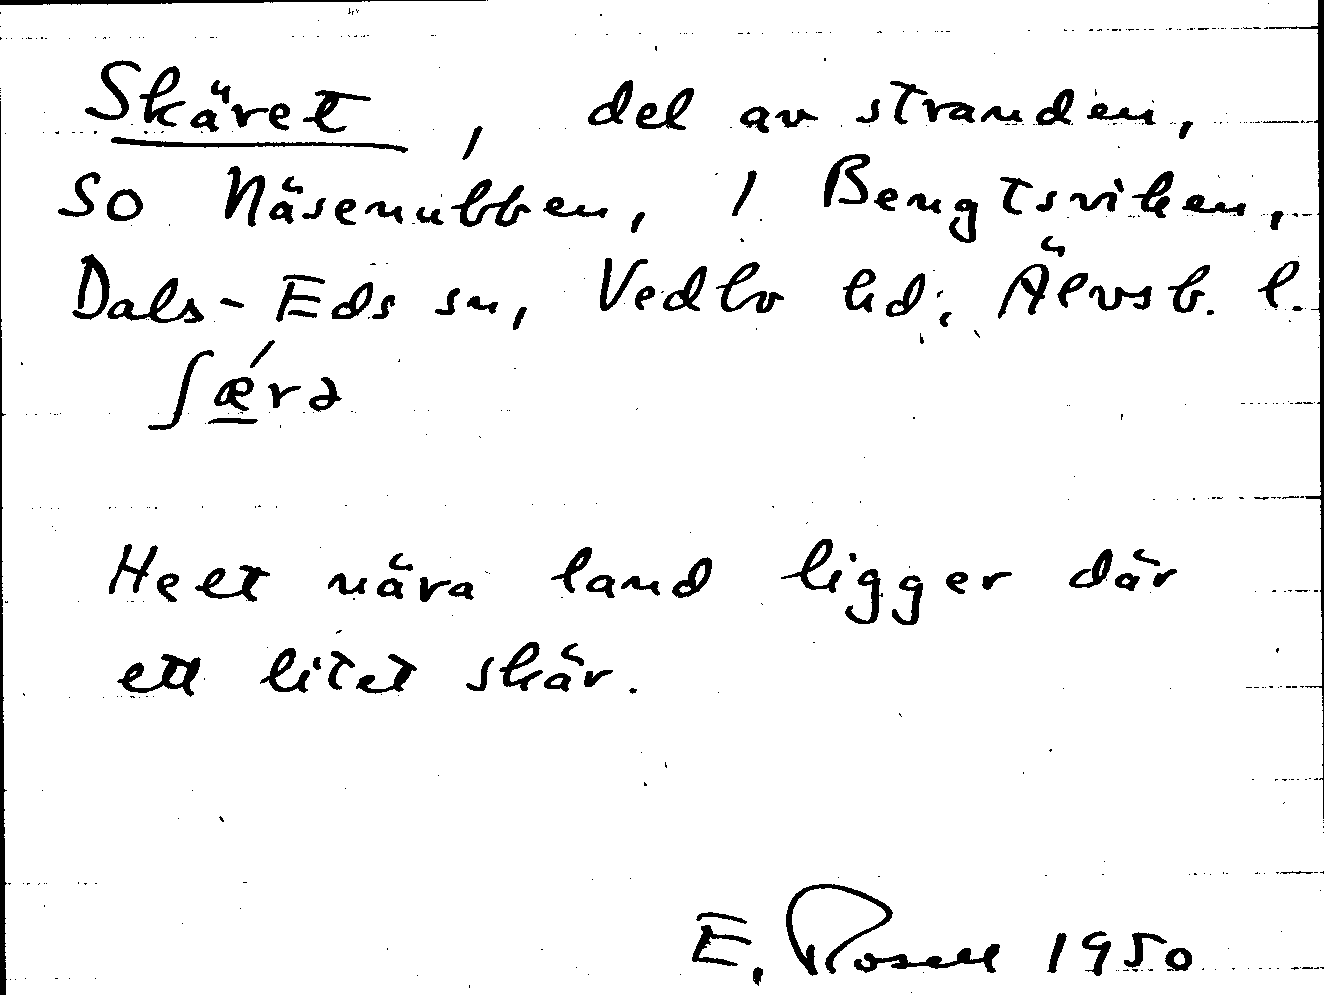 Skäret, del av stranden,
SO Näsenubben, i Bengtsviken,
Dals-Eds sn, Vedbo hd, Älvsb. l.
ʃǽ̲rə
Helt nära land ligger där
ett litet skär.
E. Rosell 1950